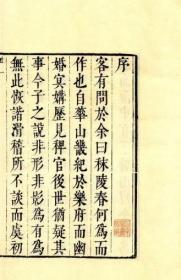 序
客有問於余曰秣陵春何為而
作也自華山畿紀於樂府而幽
婚冥媾歷見稗官後世猶疑其
事今子之說非形非影為有為
無此恢諧滑稽所不談而虞初